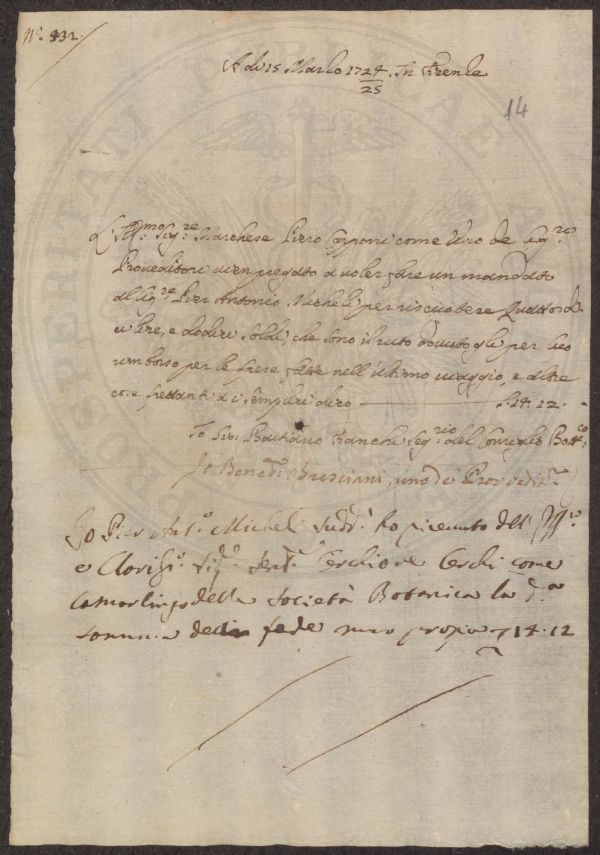 N.º 432.
A di 15 Marzo 1724/25 In Firenze
14
L'Ill.mo Sig.re Marchese Piero Capponi come Uno de Sig.ri
Proveditori vien pregato a voler fare un mandato
al Sig.re Pier Antonio Micheli per riscuotere Quattordi-
ci lire, e dodici soldi, che sono il rutto dovutogli per suo
rimborso per le spese fatte nell'ultimo viaggio, e altre
cose spettanti a i Semplici dico £. 14. 12. -
Io Gio: Bastiano Franchi Seg.rio del Consiglio Bott.co
Io Bened.º Bresciani, uno de' Provvedit.ri
Io Pier Ant.º Micheli sudd.º ho ricevuto dell' Ill.mo
e Clariss.º Sig.r Sen.r Cerchio de Cerchi come
Camarlingo della Società Botanica la d.a
somma in fede mano propria £ 14. 12
PROSPERITATI PUBLICAE A